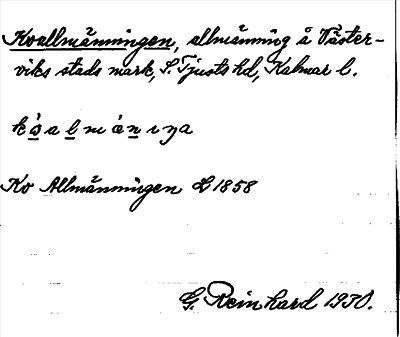 Koallmänningen, allmänning å Väster-
viks stads mark, S. Tjusts hd, Kalmar l.
Ko Allmänningen L 1858
G. Reinhard 1930.